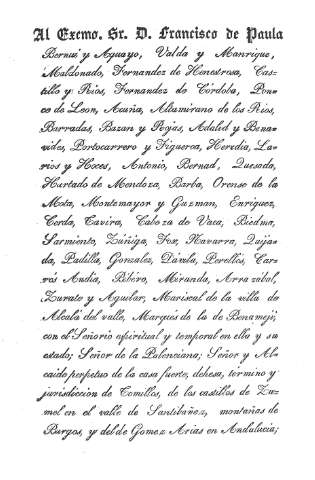 Al Excmo. Sr. D. Francisco de Paula
Bernuí y Aguayo, Valda y Manrique,
Maldonado, Fernandez de Henestrosa, Cas-
tillo y Rios, Fernandez de Córdoba, Pon-
ce de Leon, Acuña, Altamirano de los Rios,
Barradas, Bazan y Rojas, Adalid y Bena-
vides, Portocarrero y Figueroa, Heredia, La-
rios y Hoces, Antonio, Bernad, Quesada,
Hurtado de Mendoza, Barba, Orense de la
Mota, Montemayor y Guzman, Enriquez,
Cerda, Tavira, Cabeza de Vaca, Biedma,
Sarmiento, Zúñiga, Fox, Navarra, Quija-
da, Padilla, Gonzalez, Dávila, Perellós, Car-
rós Andía, Ribiro, Miranda, Arrazabal,
Zurate y Aguilar, Mariscal de la villa de
Alcalá del valle, Marqués de la de Benamejí,
con el Señorio espiritual y temporal en ella y su
estado; Señor de la Palenciana; Señor y Al-
caide perpetuo de la casa fuerte, dehesa, termino y
jurisdiccion de Comillos, de los castillos de Zu-
mel en el valle de Santibañez, montañas de
Burgos, y del de Gomez Arias en Andalucía;